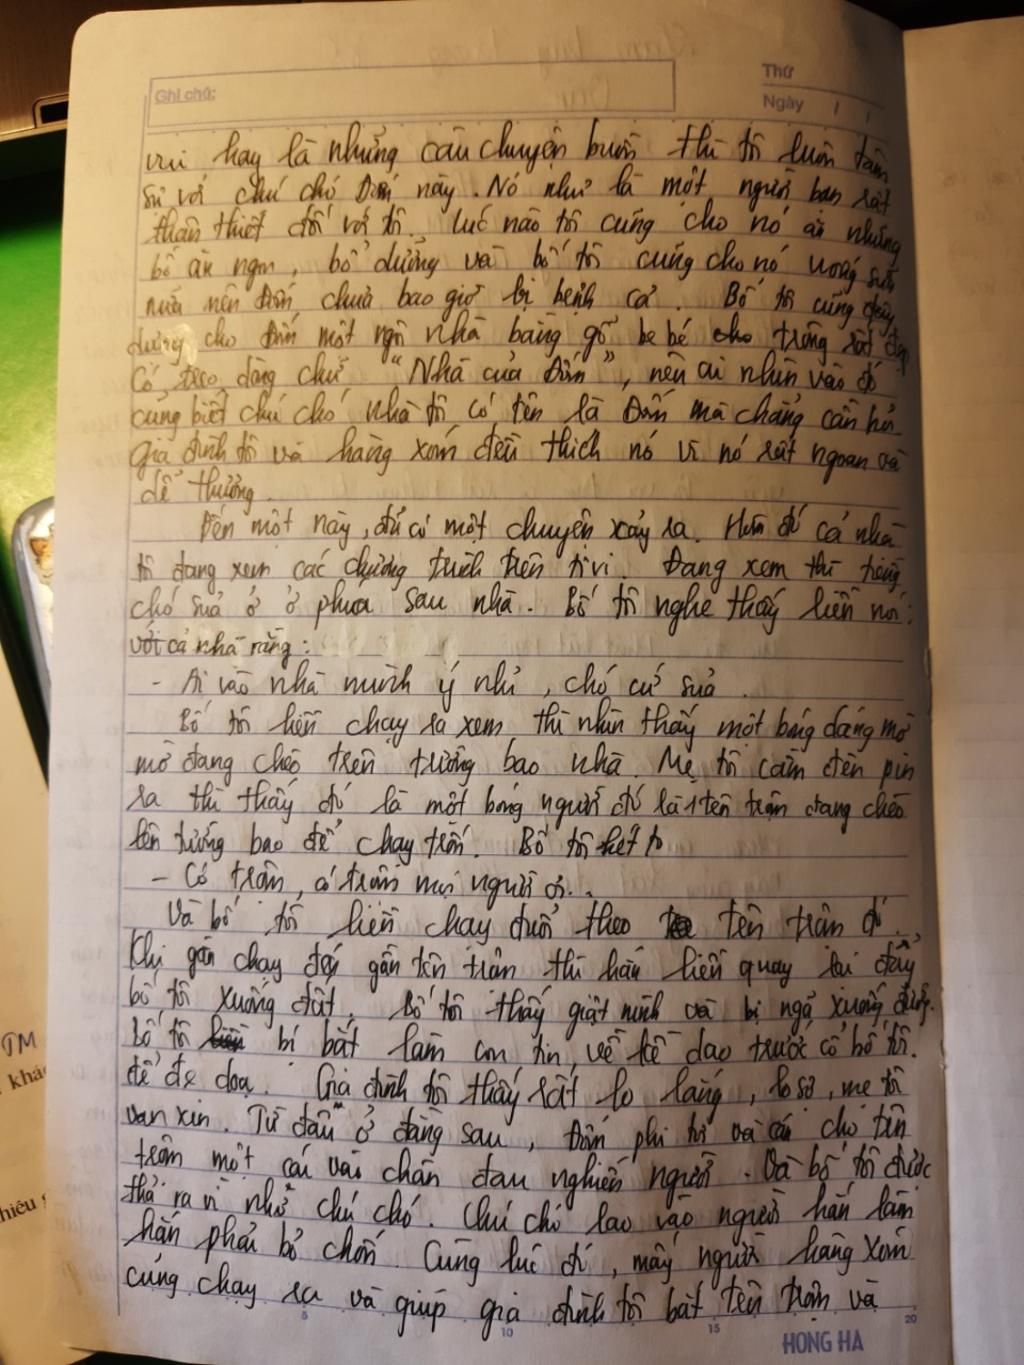 Ghi chú:
Thứ
Ngày / /
vui hay là những câu chuyện buồn thì tôi luôn tâm
sự với chú chó Đốm này. Nó như là một người bạn rất
thân thiết đối với tôi. lúc nào tôi cũng cho nó ăn những
bổ dưỡng và bố tôi cũng cho nó uống sữa
nữa nên Đốm chưa bao giờ bị bệnh cả. Bố tôi cũng
dựng cho Đốm một ngôi nhà bằng gỗ be bé trông rất đẹp
Có treo dòng chữ "Nhà của Đốm", nên ai nhìn vào đó
cũng biết chú chó nhà tôi có tên là Đốm mà chẳng cần hỏi
Gia đình tôi và hàng xóm đều thích nó vì nó rất ngoan và
dễ thương.
Đến một này, đã có một chuyện xảy ra. Hôm đó cả nhà
tôi đang xem các chương trình trên ti vi. Đang xem thì tiếng
chó sủa ở ở phía sau nhà. Bố tôi nghe thấy liền nói:
với cả nhà rằng:
- Ai vào nhà mình ý nhỉ, chó cứ sủa.
Bố tôi liền chạy ra xem thì nhìn thấy một bóng dáng mờ
mờ đang chèo trên trường bao nhà. Mẹ tôi cầm đèn pin
ra thì thấy đó là một bóng người đó là 1 tên trộm đang chèo
lên tường bao để chạy trốn. Bố tôi hét to
- Có trộm, có trộm mọi người ơi..
Và bố tôi liền chạy đuổi theo tên trộm đó.
Khi gần chạy đến gần tên trộm thì hắn liền quay lại đẩy
bố tôi xuống đất. Bố tôi thấy giật mình và bị ngã xuống đường.
Bố tôi bị bắt làm con tin, kề dao trước cổ bố tôi.
để đe dọa. Gia đình tôi thấy rất lo lắng, lo sợ, mẹ tôi
van xin. Từ đâu ở đằng sau, Đốm phi tới và cắn cho tên
trộm một cái vào chân đau nghiến người. Và bố tôi được
thả ra vì nhờ chú chó. Chú chó lao vào người hắn làm
hắn phải bỏ chốn. Cùng lúc đó, mấy người hàng xóm
cũng chạy ra và giúp gia đình tôi bắt tên trộm và
5 10 15 20
HONG HA
TM
khác
hiêu